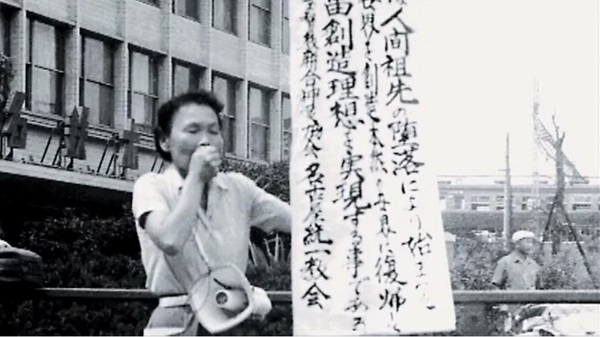 人間祖先の堕落により始まった
世界を創造本然の世界に復帰し
創造理想を実現する事である
名古屋統一教会